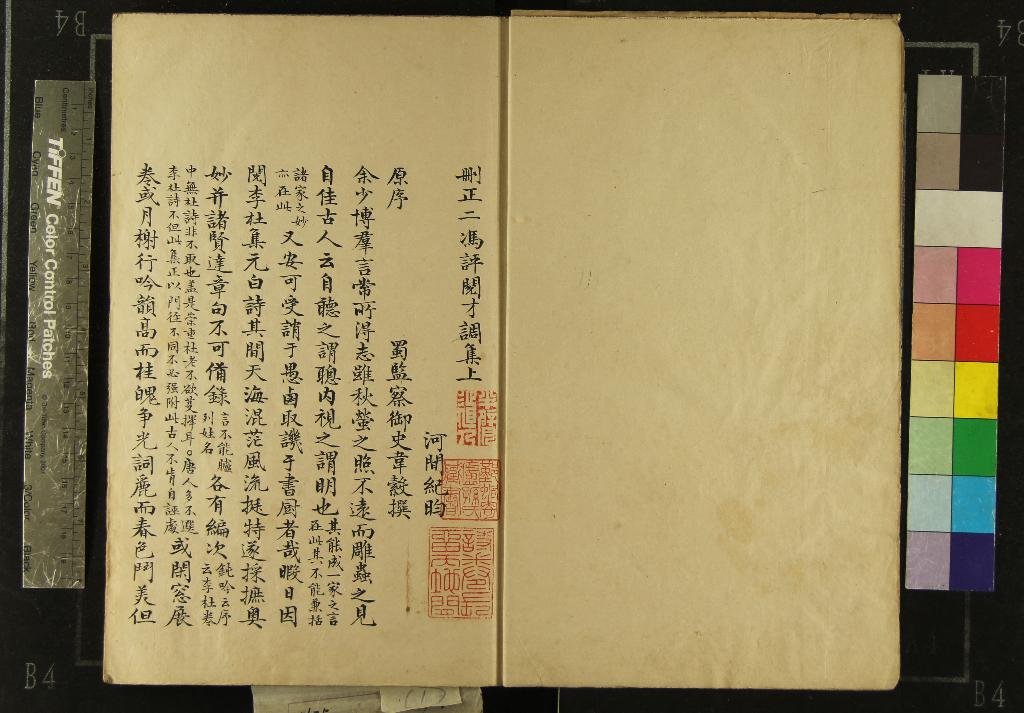 刪正二馮評閱才調集上
河間紀昀
原序
蜀監察御史韋縠撰
余少博羣言常所得志雖秋螢之照不遠而雕蟲之見
自佳古人云自聽之謂聰內視之謂明也其能成一家之言在此其不能兼括
諸家之妙亦在此又安可受誚于愚鹵取譏于書厨者哉暇日因
閱李杜集元白詩其間天海混茫風流挺特遂採摭奥
妙并諸賢達章句不可備錄言不能臚列姓名各有編次鈍吟云序云李杜卷
中無杜詩非不取也蓋是崇重杜老不欲芟擇耳。唐人多不選李杜詩不但此集正以門徑不同不必强附此古人不肯自誣處或閑窓展
卷或月榭行吟韻高而桂魄争光詞麗而春色鬥美但
TIFFEN Color Control Patches
Centimetres
Inches
Blue
Cyan
Green
Yellow
Red
Magenta
White
3/Color
Black
B4
B4
B4